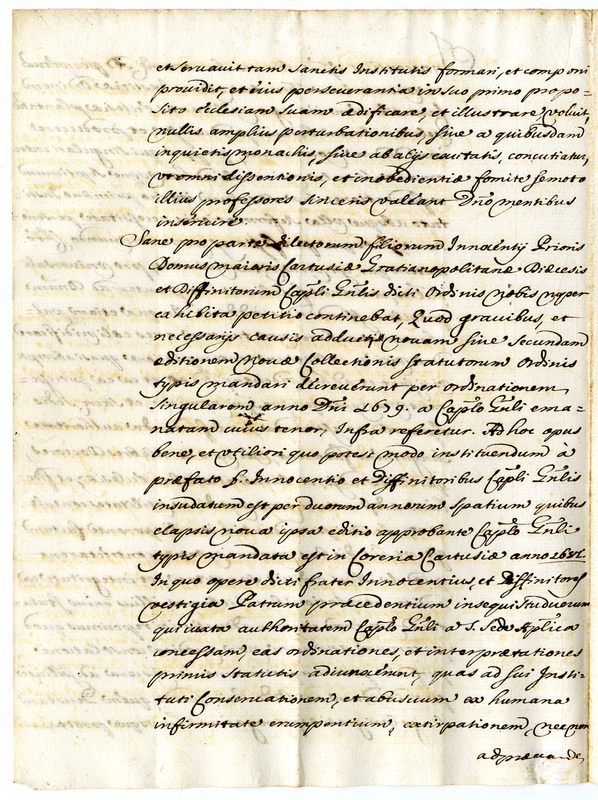 et servavit tam sanctis Institutis formari, et componi
providit, et eius perseverantia in suo primo propo=
sito Ecclesiam suam ædificare, et illustrare voluit,
nullis amplius perturbationibus, sive a quibusdam
inquietis monachis, sive ab alijs excitatis, concutiatur,
vt omni dissentionis, et inobedientiæ fomite semoto
illius professores sinceris valeant Dño mentibus
inservire.
Sane pro parte dilectorum filiorum Innocentij Prioris
Domus maioris Cartusiæ Gratianopolitanæ Diœcesis
et Diffinitorum Cap̃li Gñlis dicti Ordinis nobis nuper
exhibita petitio continebat, Quod gravibus, et
necessarijs causis adducti novam sive secundam
æditionem Novæ Collectionis Statutorum Ordinis
typis mandari decreverunt per ordinationem
singularem anno Dñi 1679. a Cap̃lo Gñli ema=
natam cuius tenor, Infra referetur. Ad hoc opus
bene, et vtiliori quo potest modo instituendum à
præfato f. Innocentio et Diffinitoribus Cap̃li Gñlis
insudatum est per duorum annorum spatium quibus
elapsis nova ipsa editio approbante Cap̃lo Gñli
typis mandata est in Coreria Cartusiæ anno
In quo opere dicti frater Innocentius, et Diffinitores
vestigia Patrum præcedentium insequi studuerunt
qui iuxta authoritatem Cap̃lo Gñli a S. Sede Ap̃lica
concessam, eas ordinationes, et interprætationes
primis Statutis adiunxerunt, quas ad sui Insti=
tuti Conservationem, et abusuum ex humana
infirmitate erumpentium, extirpationem, nec non
ad præcaven